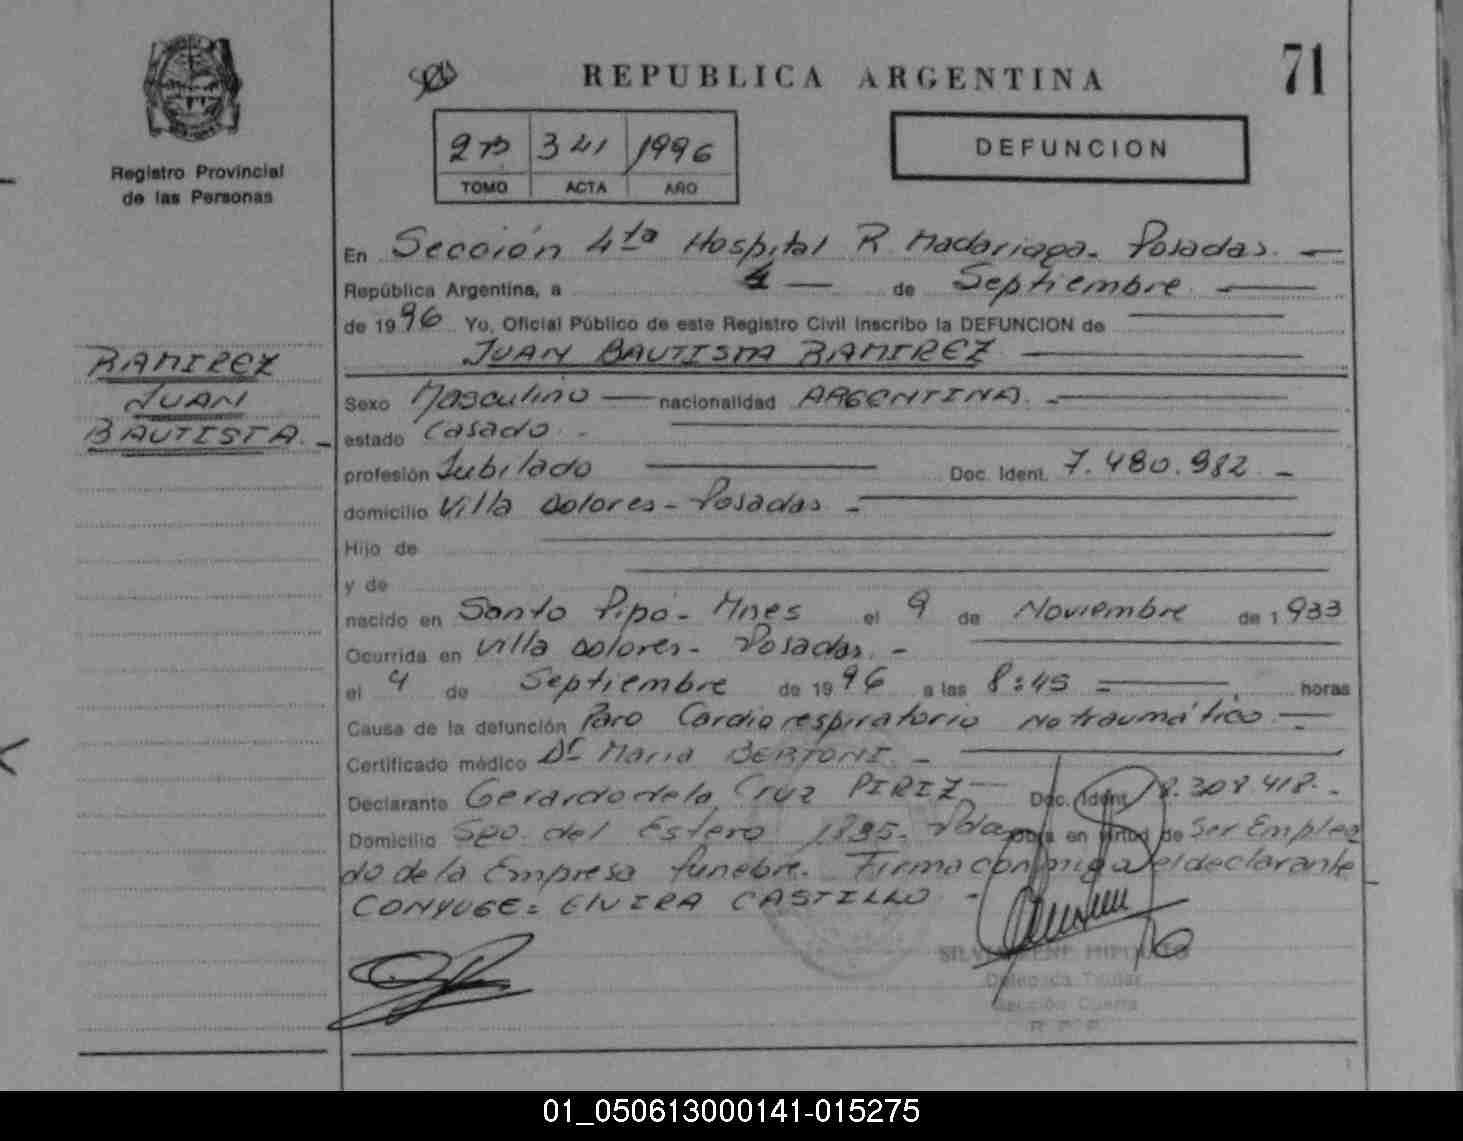 REPUBLICA ARGENTINA
71
Registro Provincial
de las Personas
341 1996
TOMO ACTA AÑO
DEFUNCION
En Sección 4ta Hospital R. Madariaga - Posadas. —
República Argentina, a 4 — de Septiembre —
de 1996 Yo, Oficial Público de este Registro Civil inscribo la DEFUNCION de —
JUAN BAUTISTA RAMIREZ —
RAMIREZ
JUAN
BAUTISTA. -
Sexo Masculino — nacionalidad ARGENTINA. —
estado Casado. —
profesión Jubilado — Doc. Ident. 7.480.982 -
domicilio Villa Dolores - Posadas -
Hijo de —
y de —
nacido en Santo Pipó - Mnes el 9 de Noviembre de 1933
Ocurrida en Villa Dolores - Posadas. -
el 4 de Septiembre de 1996 a las 8:45 — horas
Causa de la defunción Paro Cardiorespiratorio No traumático —
Certificado médico Dr María BERTONI. -
Declarante Gerardo de la Cruz PIRIZ — Doc. Ident. 8.308.418. -
Domicilio Sgo. del Estero 1895 - Pdas Obra en virtud de Ser Emplea
do de la Empresa fúnebre. Firma conmigo el declarante
CONYUGE: ELVIRA CASTILLO -
Delegada Titular
Sección Cuarta
R. P. P.
01_050613000141-015275